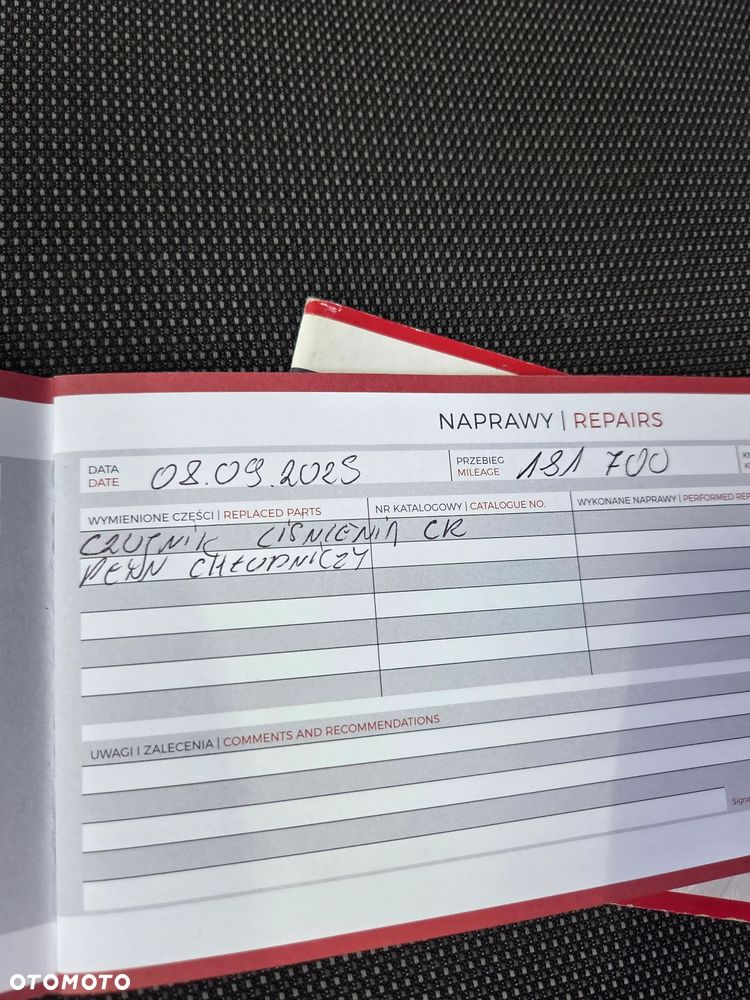 NAPRAWY | REPAIRS
DATA
DATE
08.09.2025
PRZEBIEG
MILEAGE
181 700
WYMIENIONE CZĘŚCI | REPLACED PARTS
NR KATALOGOWY | CATALOGUE NO.
WYKONANE NAPRAWY | PERFORMED REP
CZUJNIK CIŚNIENIA CR
PŁYN CHŁODNICZY
UWAGI I ZALECENIA | COMMENTS AND RECOMMENDATIONS
Signa
OTOMOTO